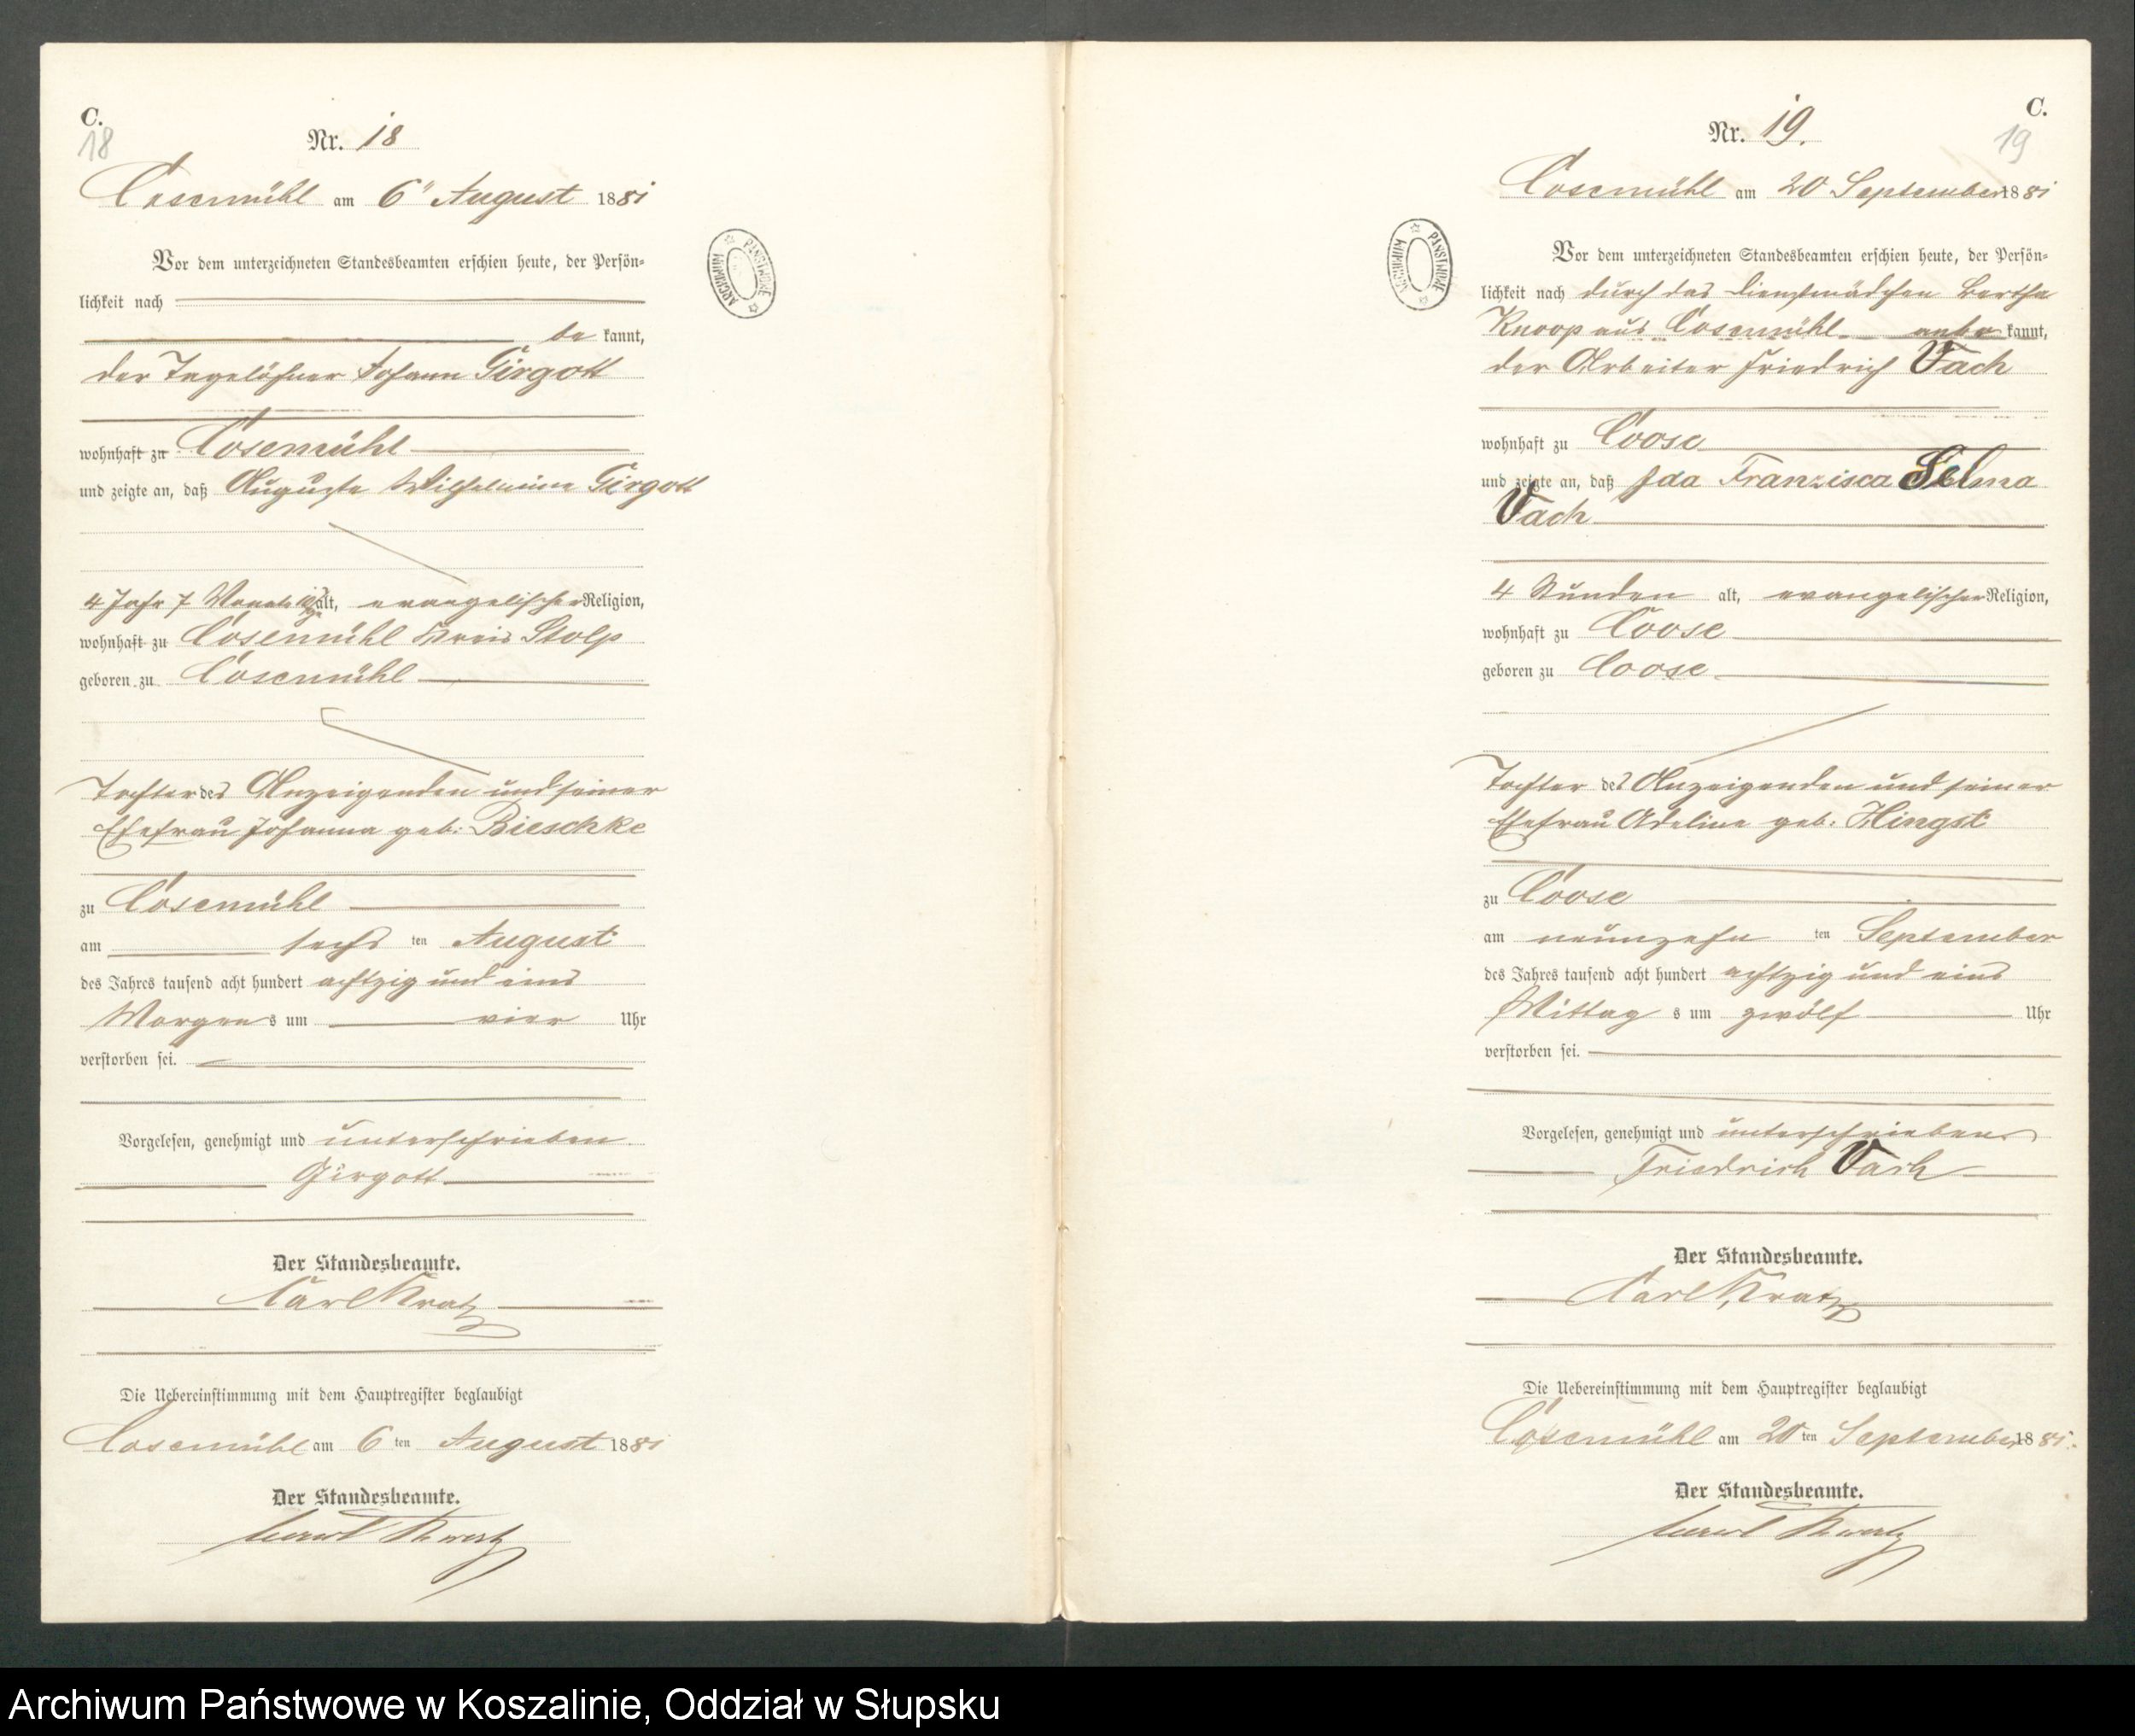 C.
18
Nr. 18
Cosemühl am 6" August 1881
Vor dem unterzeichneten Standesbeamten erschien heute, der Persön-
lichkeit nach
be kannt,
der Tagelöhner Johann Girgott
wohnhaft zu Cosemühl
und zeigte an, daß Auguste Wilhelmine Girgott
4 Jahr 7 Monate alt, evangelischer Religion,
wohnhaft zu Cosemühl Kreis Stolp
geboren zu Cosemühl
Tochter des Anzeigenden und seiner
Ehefrau Johanna geb: Bieschke
zu Cosemühl
am sechs ten August
des Jahres tausend acht hundert achtzig und eins
Morgens um vier Uhr
verstorben sei.
Vorgelesen, genehmigt und unterschrieben
Girgott
Der Standesbeamte.
Carl Kratz
Die Uebereinstimmung mit dem Hauptregister beglaubigt
Cosemühl am 6 ten August 1881
Der Standesbeamte.
Carl Kratz
ARCHIWUM PAŃSTWOWE
C.
19
Nr. 19.
Cosemühl am 20 September 1881
Vor dem unterzeichneten Standesbeamten erschien heute, der Persön-
lichkeit nach durch das Dienstmädchen Bertha
Knoop aus Cosemühl anbe kannt,
der Arbeiter Friedrich Vach
wohnhaft zu Coose
und zeigte an, daß Ida Franzisca Selma
Vach
4 Stunden alt, evangelischer Religion,
wohnhaft zu Coose
geboren zu Coose
Tochter des Anzeigenden und seiner
Ehefrau Adeline geb: Hingst
zu Coose
am neunzehn ten September
des Jahres tausend acht hundert achtzig und eins
Mittags um zwölf Uhr
verstorben sei.
Vorgelesen, genehmigt und unterschrieben
Friedrich Vach
Der Standesbeamte.
Carl Kratz
Die Uebereinstimmung mit dem Hauptregister beglaubigt
Cosemühl am 20 ten September 1881.
Der Standesbeamte.
Carl Kratz
ARCHIWUM PAŃSTWOWE
Archiwum Państwowe w Koszalinie, Oddział w Słupsku